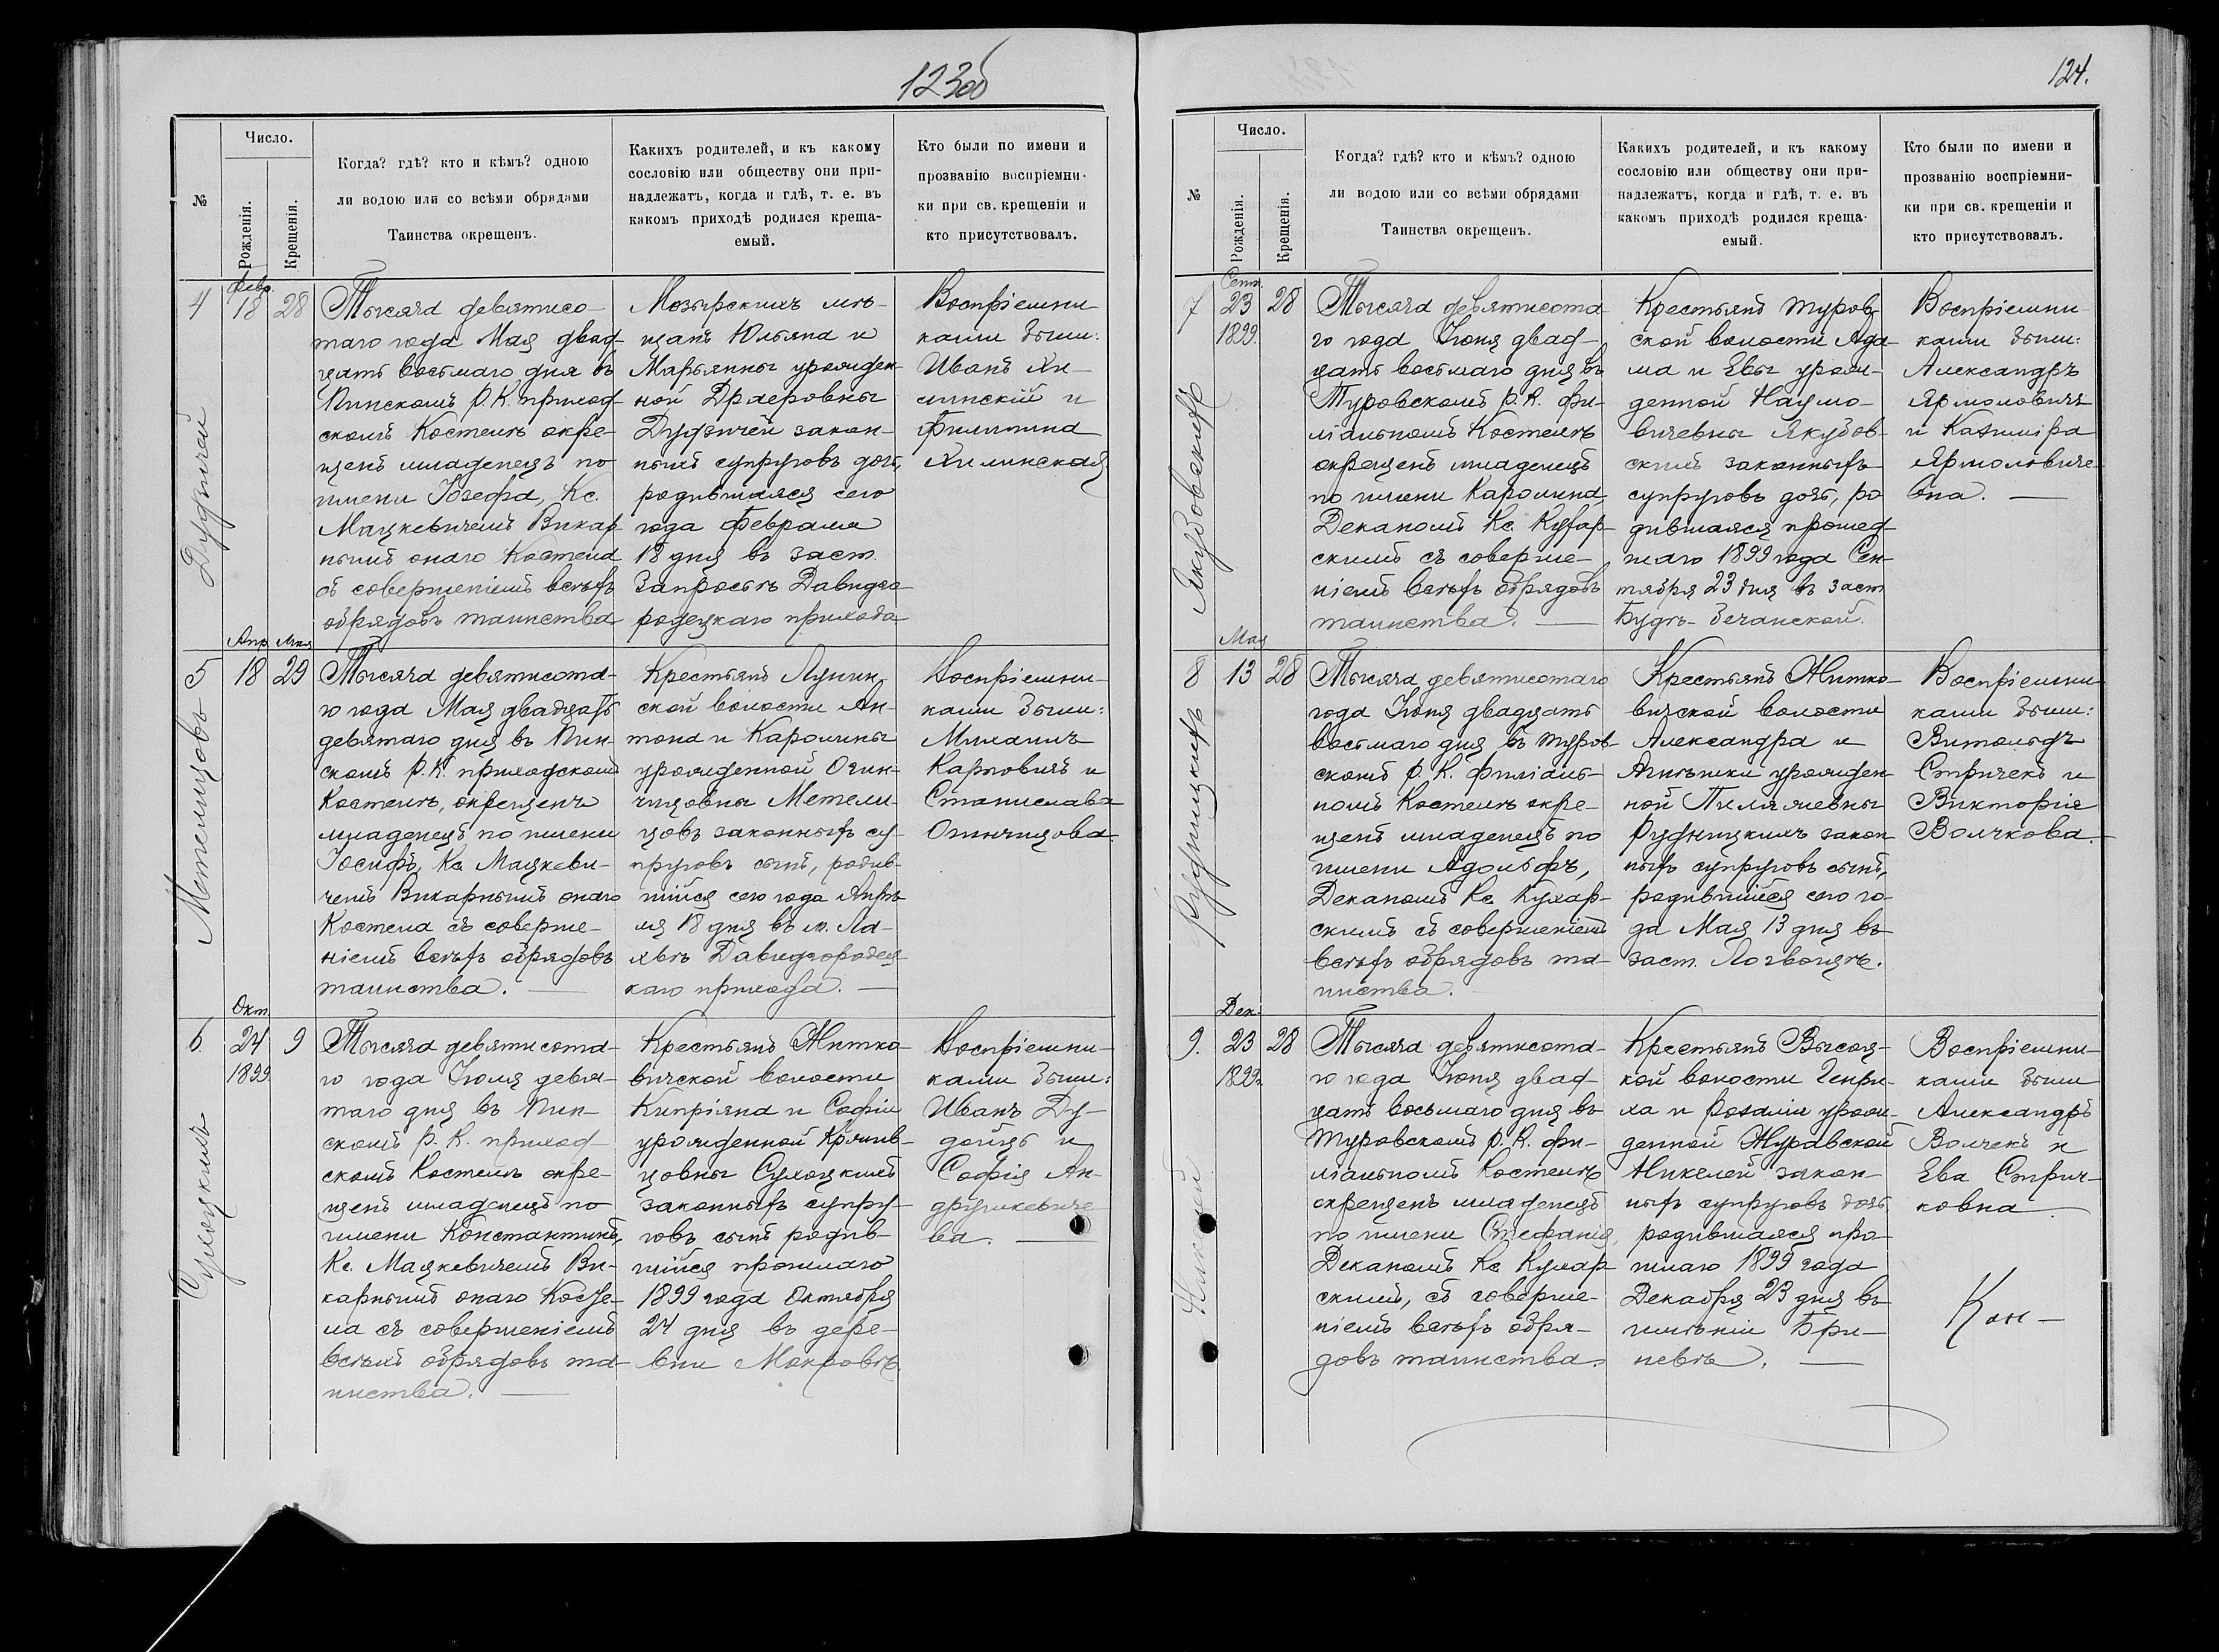 123об
№
Число.
Рожденія.
Крещенія.
Когда? гдѣ? кто и кѣмъ? одною
ли водою или со всѣми обрядами
Таинства окрещенъ.
Какихъ родителей, и къ какому
сословію или обществу они при-
надлежатъ, когда и гдѣ, т. е. въ
какомъ приходѣ родился креща-
емый.
Кто были по имени и
прозванію воспріемни-
ки при св. крещеніи и
кто присутствовалъ.
4
Февр.
18 28
Дудзичей
Тысяча девятисо-
таго года Мая двад-
цать восьмаго дня въ
Пинскомъ Р. К. приход-
скомъ Костелѣ окре-
щенъ младенецъ по
имени Іозефа, Кс.
Мацкевичемъ Викар-
нымъ онаго Костела
съ совершеніемъ всѣхъ
обрядовъ таинства
Мозырскихъ мѣ-
щанъ Юльяна и
Марьянны урожден-
ной
Дудзичей закон-
ныхъ супруговъ дочь,
родившаяся сего
года Февраля
18 дня въ заст.
Запросьѣ Давидго-
родецкаго прихода
Воспріемни-
ками были:
Иванъ Хи-
линскій и
Филипина
Хилинская
5
Апр. Мая
18 29
Метелицовъ
Тысяча девятисота-
го года Мая двадцать
девятаго дня въ Пин-
скомъ Р. К. приходскомъ
Костелѣ, окрещенъ
младенецъ по имени
Іосифъ, Кс. Мацкеви-
чемъ Викарнымъ онаго
Костела съ соверше-
ніемъ всѣхъ обрядовъ
таинства.
Крестьянъ Лунин-
ской волости Ан-
тона и Каролины
урожденной Огин-
чицовны Метели-
цовъ законныхъ су-
пруговъ сынъ, родив-
шійся сего года Апрѣ-
ля 18 дня въ м. Ла-
хвѣ Давидгородец-
каго прихода.
Воспріемни-
ками были:
Михаилъ
Карповичъ и
Станислава
Огинчицова
6.
Окт.
24 9
1899
Сулоцкихъ
Тысяча девятисота-
го года Іюля девя-
таго дня въ Пин-
скомъ Р. К. приход-
скомъ Костелѣ окре-
щенъ младенецъ по
имени Константинъ,
Кс. Мацкевичемъ Ви-
карнымъ онаго Косте-
ла съ совершеніемъ
всѣхъ обрядовъ та-
инства.
Крестьянъ Житко-
вичской волости
Кипріяна и Софіи
урожденной
цовны Сулоцкихъ
законныхъ супру-
говъ сынъ родив-
шійся прошлаго
1899 года Октября
24 дня въ дере-
вни Мокровѣ
Воспріемни-
ками были:
Иванъ Ду-
дойцъ и
Софія Ан-
друшкевиче-
ва.
124.
№
Число.
Рожденія.
Крещенія.
Когда? гдѣ? кто и кѣмъ? одною
ли водою или со всѣми обрядами
Таинства окрещенъ.
Какихъ родителей, и къ какому
сословію или обществу они при-
надлежатъ, когда и гдѣ, т. е. въ
какомъ приходѣ родился креща-
емый.
Кто были по имени и
прозванію воспріемни-
ки при св. крещеніи и
кто присутствовалъ.
7
Сент.
23 28
1899.
Якубовскихъ
Тысяча девятисота-
го года Іюня двад-
цать восьмаго дня въ
Туровскомъ Р. К. фи-
ліальномъ Костелѣ
окрещенъ младенецъ
по имени Каролина
Деканомъ Кс. Кухар-
скимъ съ соверше-
ніемъ всѣхъ обрядовъ
таинства.
Крестьянъ Туров-
ской волости Ада-
ма и Евы урож-
денной Наумо-
вичевны Якубов-
скихъ законныхъ
супруговъ дочь, ро-
дившаяся прошед-
шаго 1899 года Сен-
тября 23 дня въ заст.
Будѣ-Бечанской.
Воспріемни-
ками были:
Александръ
Ярмоловичъ
и Казиміра
Ярмоловиче-
вна.
8
Мая
13 28
Рудницкихъ
Тысяча девятисотаго
года Іюня двадцать
восьмаго дня въ Туров-
скомъ Р. К. филіаль-
номъ Костелѣ окре-
щенъ младенецъ по
имени Адольфъ,
Деканомъ Кс. Кухар-
скимъ съ совершеніемъ
всѣхъ обрядовъ та-
инства.
Крестьянъ Житко-
вичской волости
Александра и
Агнѣшки урожден-
ной
Рудницкихъ закон-
ныхъ супруговъ сынъ,
родившійся сего го-
да Мая 13 дня въ
заст. Логвощѣ.
Воспріемни-
ками были:
Витольдъ
Стричекъ и
Викторія
Волчкова.
9.
Дек.
23 28
1899.
Никелей
Тысяча девятисота-
го года Іюня двад-
цать восьмаго дня въ
Туровскомъ Р. К. фи-
ліальномъ Костелѣ
окрещенъ младенецъ
по имени Стефанія,
Деканомъ Кс. Кухар-
скимъ, съ соверше-
ніемъ всѣхъ обря-
довъ таинства.
Крестьянъ Высоц-
кой волости Генри-
ха и Розаліи урож-
денной Журавской
Никелей закон-
ныхъ супруговъ дочь
родившаяся про-
шлаго 1899 года
Декабря 23 дня въ
имѣніи Бри-
невѣ.
Воспріемни-
ками были
Александръ
Волчекъ и
Ева Стрич-
ковна
Кон-